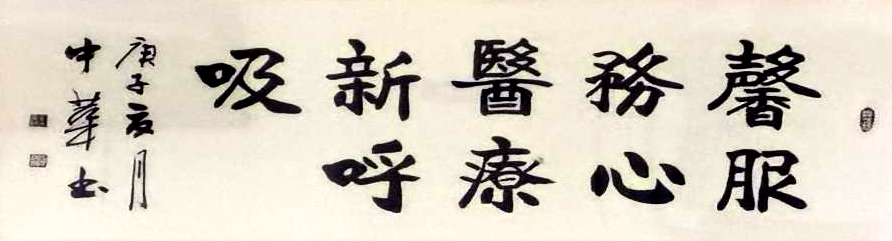 馨服
務心
醫療
新呼
吸
庚子夏月
中華书